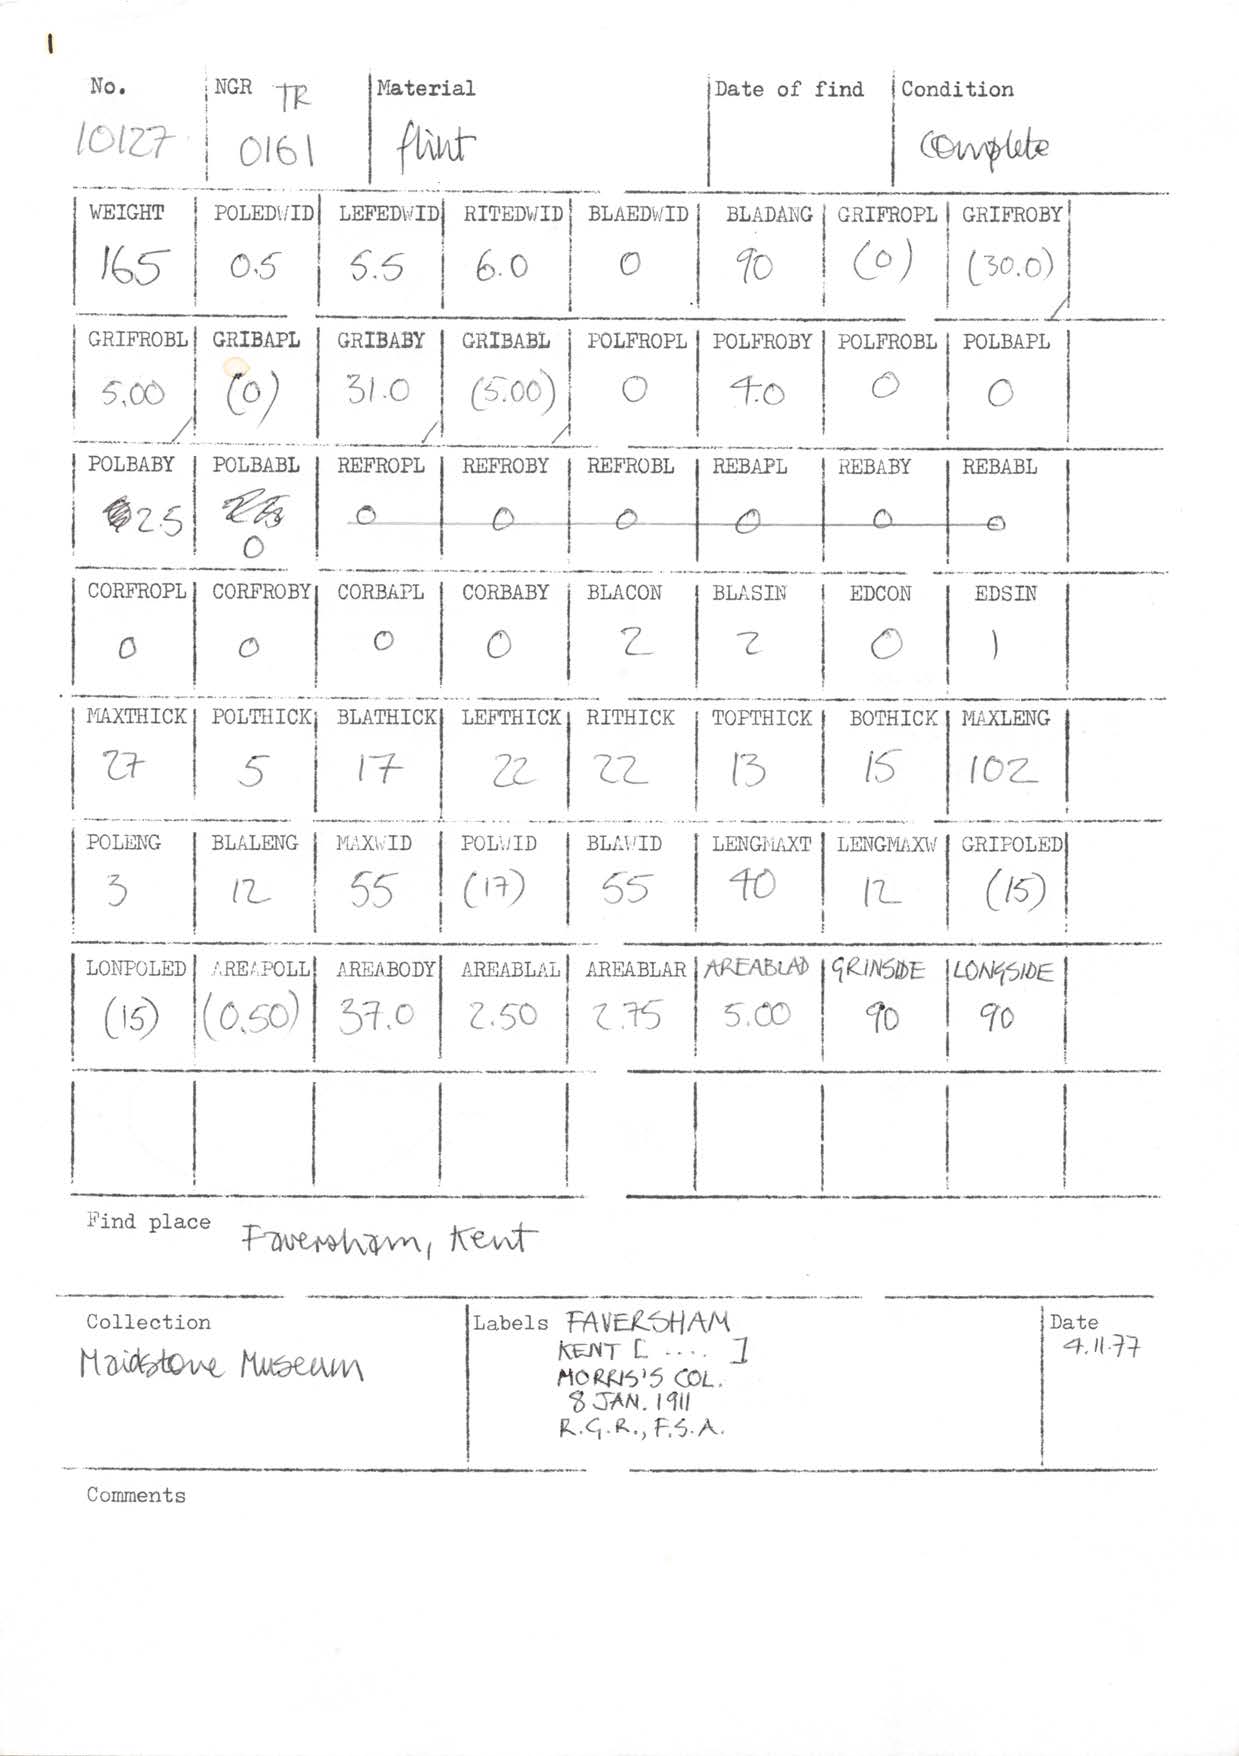 1
No. NGR TR Material Date of find Condition
10127 0161 flint complete
WEIGHT POLEDWID LEFEDWID RITEDWID BLAEDWID BLADANG GRIFROPL GRIFROBY
165 0.5 5.5 6.0 0 90 (0) (30.0)
GRIFROBL GRIBAPL GRIBABY GRIBABL POLFROPL POLFROBY POLFROBL POLBAPL
5.00 (0) 31.0 (5.00) 0 4.0 0 0
POLBABY POLBABL REFROPL REFROBY REFROBL REBAPL REBABY REBABL
2.5 0 0 0 0 0 0 0
CORFROPL CORFROBY CORBAPL CORBABY BLACON BLASIN EDCON EDSIN
0 0 0 0 2 2 0 1
MAXTHICK POLTHICK BLATHICK LEFTHICK RITHICK TOPTHICK BOTHICK MAXLENG
27 5 17 22 22 13 15 102
POLENG BLALENG MAXWID POLWID BLAWID LENGMAXT LENGMAXW GRIPOLED
3 12 55 (17) 55 40 12 (15)
LONPOLED AREAPOLL AREABODY AREABLAL AREABLAR AREABLAD GRINSIDE LONGSIDE
(15) (0.50) 37.0 2.50 2.75 5.00 90 90
Find place Faversham, Kent
Collection Labels FAVERSHAM Date
Maidstone Museum KENT [ .... ] 4.11.77
MORRIS'S COL.
8 JAN. 1911
R.G.R., F.S.A.
Comments